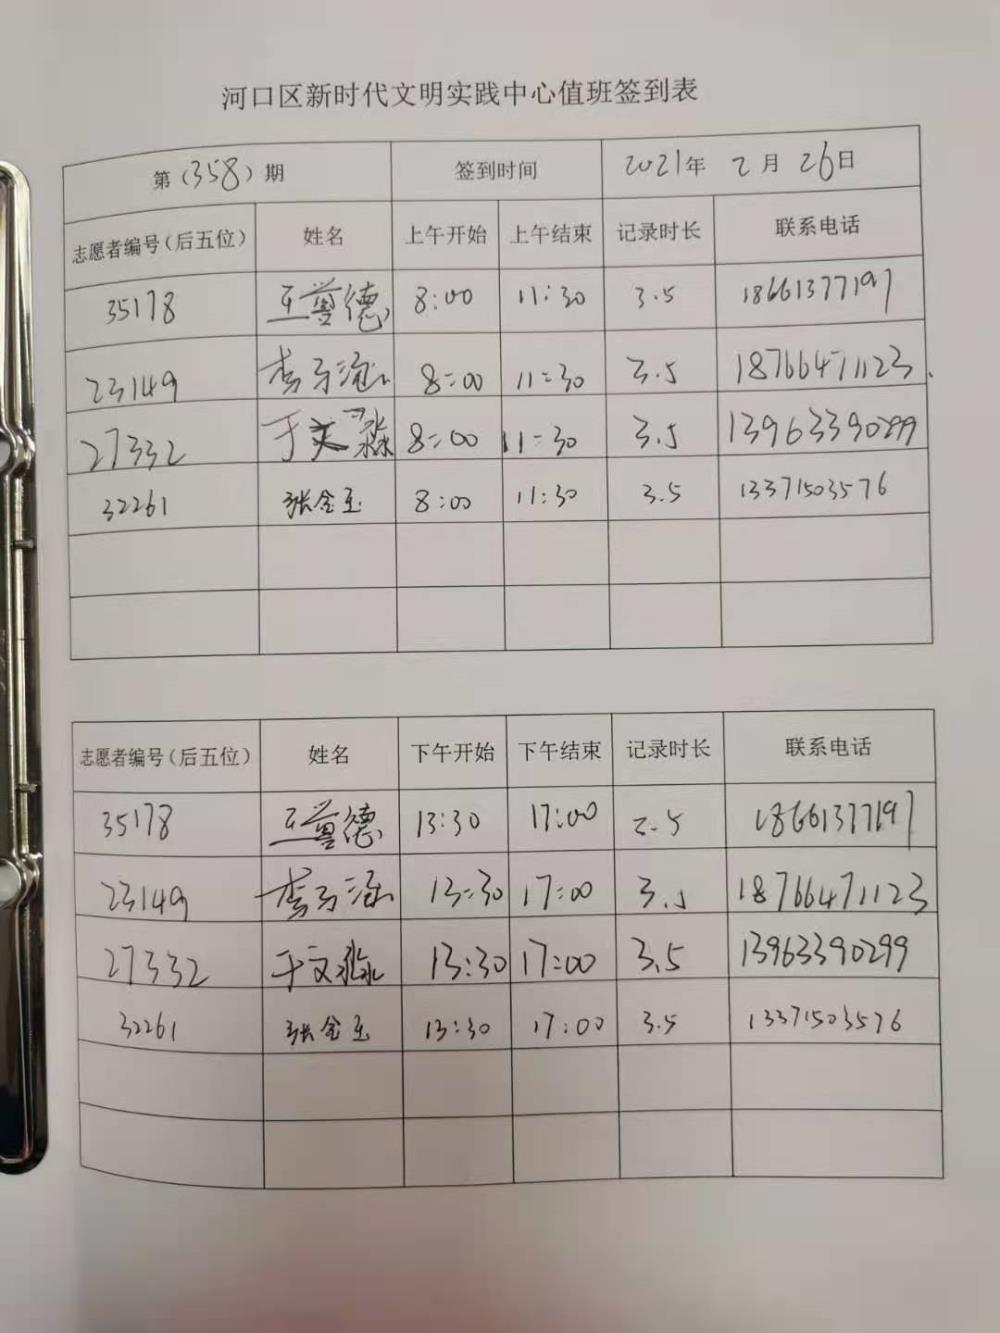 河口区新时代文明实践中心值班签到表
第（358）期 签到时间 2021年 2月 26日
志愿者编号（后五位） 姓名 上午开始 上午结束 记录时长 联系电话
35178 王尊德 8:00 11:30 3.5 18661377197
23149 李子涵 8:00 11:30 3.5 18766471123
27332 于文淼 8:00 11:30 3.5 13963390299
32261 张金玉 8:00 11:30 3.5 13371503576
志愿者编号（后五位） 姓名 下午开始 下午结束 记录时长 联系电话
35178 王尊德 13:30 17:00 3.5 18661377197
23149 李子涵 13:30 17:00 3.5 18766471123
27332 于文淼 13:30 17:00 3.5 13963390299
32261 张金玉 13:30 17:00 3.5 13371503576